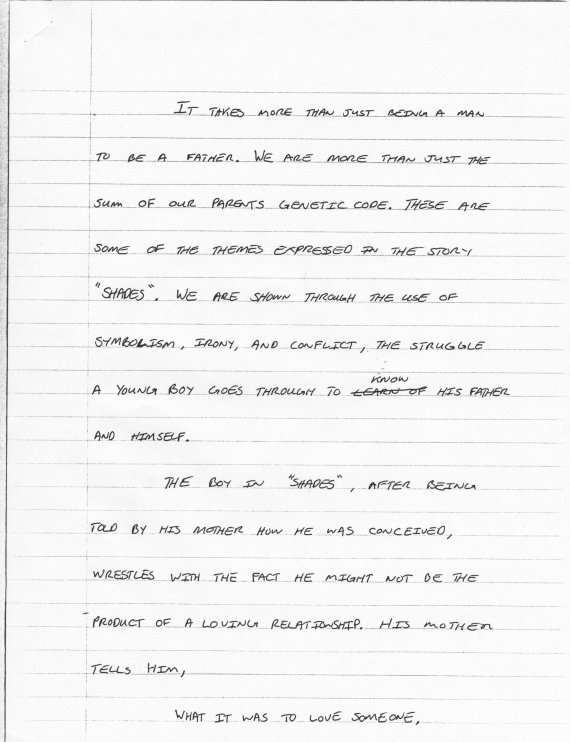 IT TAKES MORE THAN JUST BEING A MAN
TO BE A FATHER. WE ARE MORE THAN JUST THE
SUM OF OUR PARENTS GENETIC CODE. THESE ARE
SOME OF THE THEMES EXPRESSED IN THE STORY
"SHADES". WE ARE SHOWN THROUGH THE USE OF
SYMBOLISM, IRONY, AND CONFLICT, THE STRUGGLE
KNOW
A YOUNG BOY GOES THROUGH TO LEARN OF HIS FATHER
AND HIMSELF.
THE BOY IN "SHADES", AFTER BEING
TOLD BY HIS MOTHER HOW HE WAS CONCEIVED,
WRESTLES WITH THE FACT HE MIGHT NOT BE THE
PRODUCT OF A LOVING RELATIONSHIP. HIS MOTHER
TELLS HIM,
WHAT IT WAS TO LOVE SOMEONE,